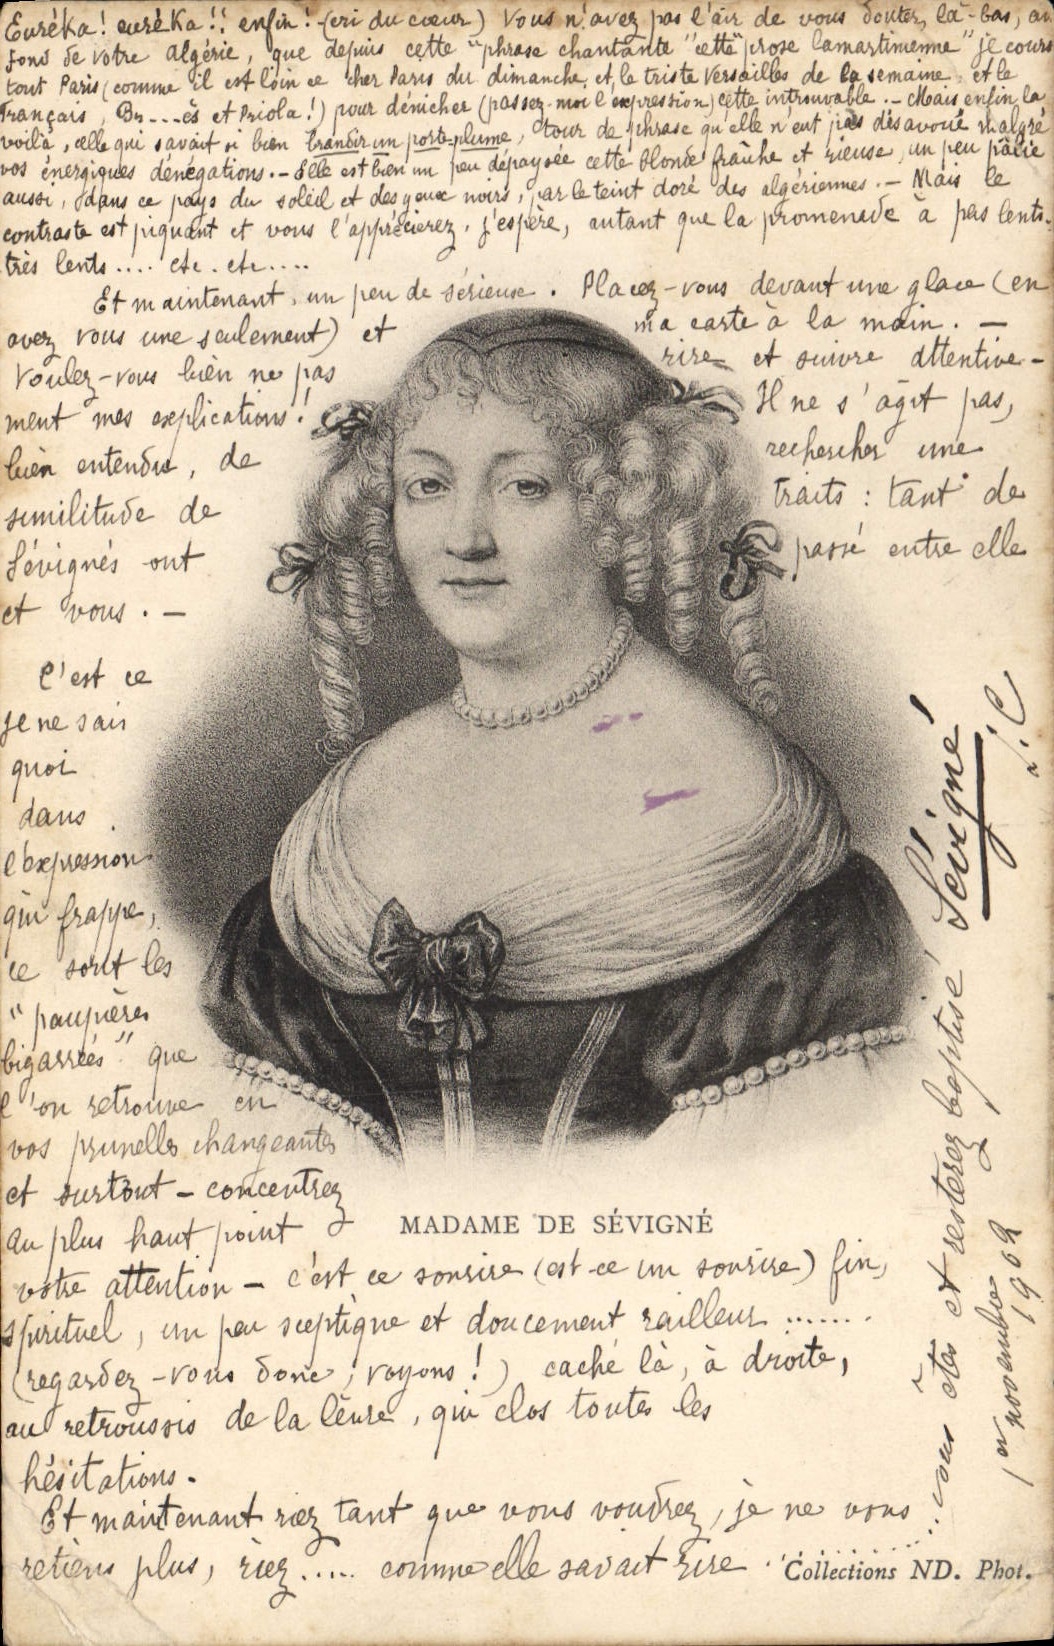 Euréka! euréka!! enfin! (cri du cœur) Vous n'avez pas l'air de vous douter, là-bas, au
fond de votre Algérie, que depuis cette "phrase chantante" "cette" prose lamartinienne" je cours
tout Paris (comme il est loin ce cher Paris du dimanche, et le triste Versailles de la semaine, et le
Français, et Priola!) pour dénicher (passez-moi l'expression) cette introuvable. - Mais enfin la
voilà, celle qui savait si bien brandir un porte-plume, tour de phrase qu'elle n'eut pas désavoué malgré
vos énergiques dénégations. - Elle est bien un peu dépaysée cette blonde fraîche et rieuse, un peu pâlie
aussi, dans ce pays du soleil et des yeux noirs, par le teint doré des algériennes. - Mais le
contraste est piquant et vous l'apprécierez, j'espère, autant que la promenade à pas lents.
très lents.... etc. etc....
Et maintenant, un peu de sérieuse. Placez-vous devant une glace (en
avez vous une seulement) et ma carte à la main. -
Voulez-vous bien ne pas rire et suivre attentive-
ment mes explications! Il ne s'agit pas,
bien entendu, de rechercher une
similitude de traits: tant de
Sévignés ont passé entre elle
et vous. -
C'est ce
je ne sais
quoi
dans
l'expression
qui frappe,
ce sont les
"paupières
bigarrées" que
l'on retrouve en
vos prunelles changeantes
et surtout - concentrez
au plus haut point
MADAME DE SÉVIGNÉ
votre attention - c'est ce sourire (est-ce un sourire) fin,
spirituel, un peu sceptique et doucement railleur .......
(regardez-vous donc, voyons!) caché là, à droite,
au retroussis de la lèvre, qui clos toutes les
hésitations.
Et maintenant riez tant que vous voudrez, je ne vous
retiens plus, riez..... comme elle savait rire
Collections ND. Phot.
...vous êtes et resterez baptisé Sévigné
1er novembre
1902